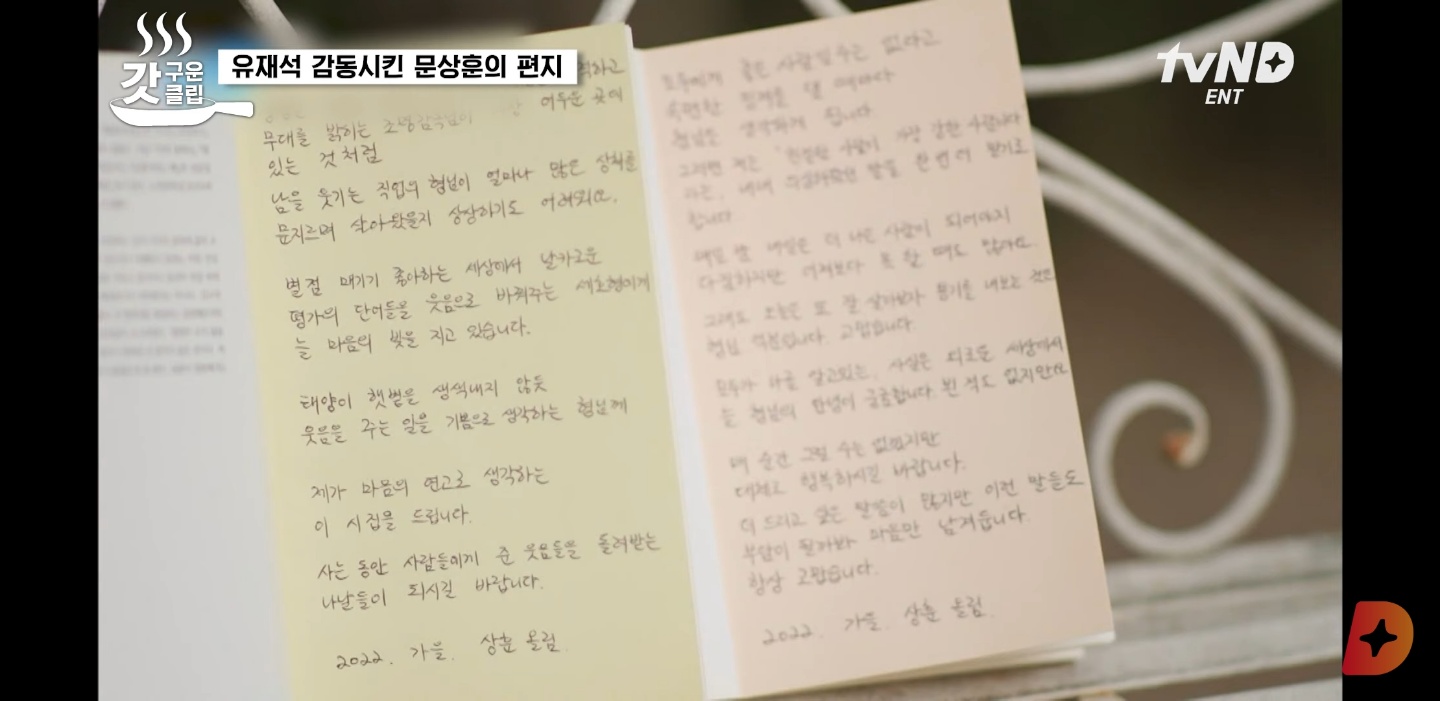 갓
구운
클립
유재석 감동시킨 문상훈의 편지
tvND
ENT
어두운 곳에
무대를 밝히는 조명감독님이
있는 것처럼
남을 웃기는 직업의 형님이 얼마나 많은 상처를
문지르며 살아왔을지 상상하기도 어려워요.
별점 매기기 좋아하는 세상에서 날카로운
평가의 단어들을 웃음으로 바꿔주는 세호형에게
늘 마음의 빚을 지고 있습니다.
태양이 햇볕을 생색내지 않듯
웃음을 주는 일을 기쁨으로 생각하는 형님께
제가 마음의 연고로 생각하는
이 시집을 드립니다.
사는 동안 사람들에게 준 웃음들을 돌려받는
나날들이 되시길 바랍니다.
2022. 가을. 상훈 올림.
모두에게 좋은 사람일 수는 없다고
형님을 생각하게 됩니다.
그러면 저는 "한결같은 사람이 가장 강한 사람이다"
합니다
매일 밤 내일은 더 나은 사람이 되어야지
다짐하지만 어제보다 못할 때도 많아요.
그래도 오늘은 또 잘 살아보자 용기를 내보는 것은
형님 덕분입니다. 고맙습니다.
모두가 나를 알고있는, 사실은 외로운 세상에서
는 형님의 안녕이 궁금합니다. 뵌 적도 없지만요
매 순간 그럴 수는 없겠지만
대체로 행복하시길 바랍니다.
더 드리고 싶은 말씀이 많지만 이런 말들도
부담이 될까봐 마음만 남겨둡니다.
항상 고맙습니다.
2022. 가을. 상훈 올림.
D